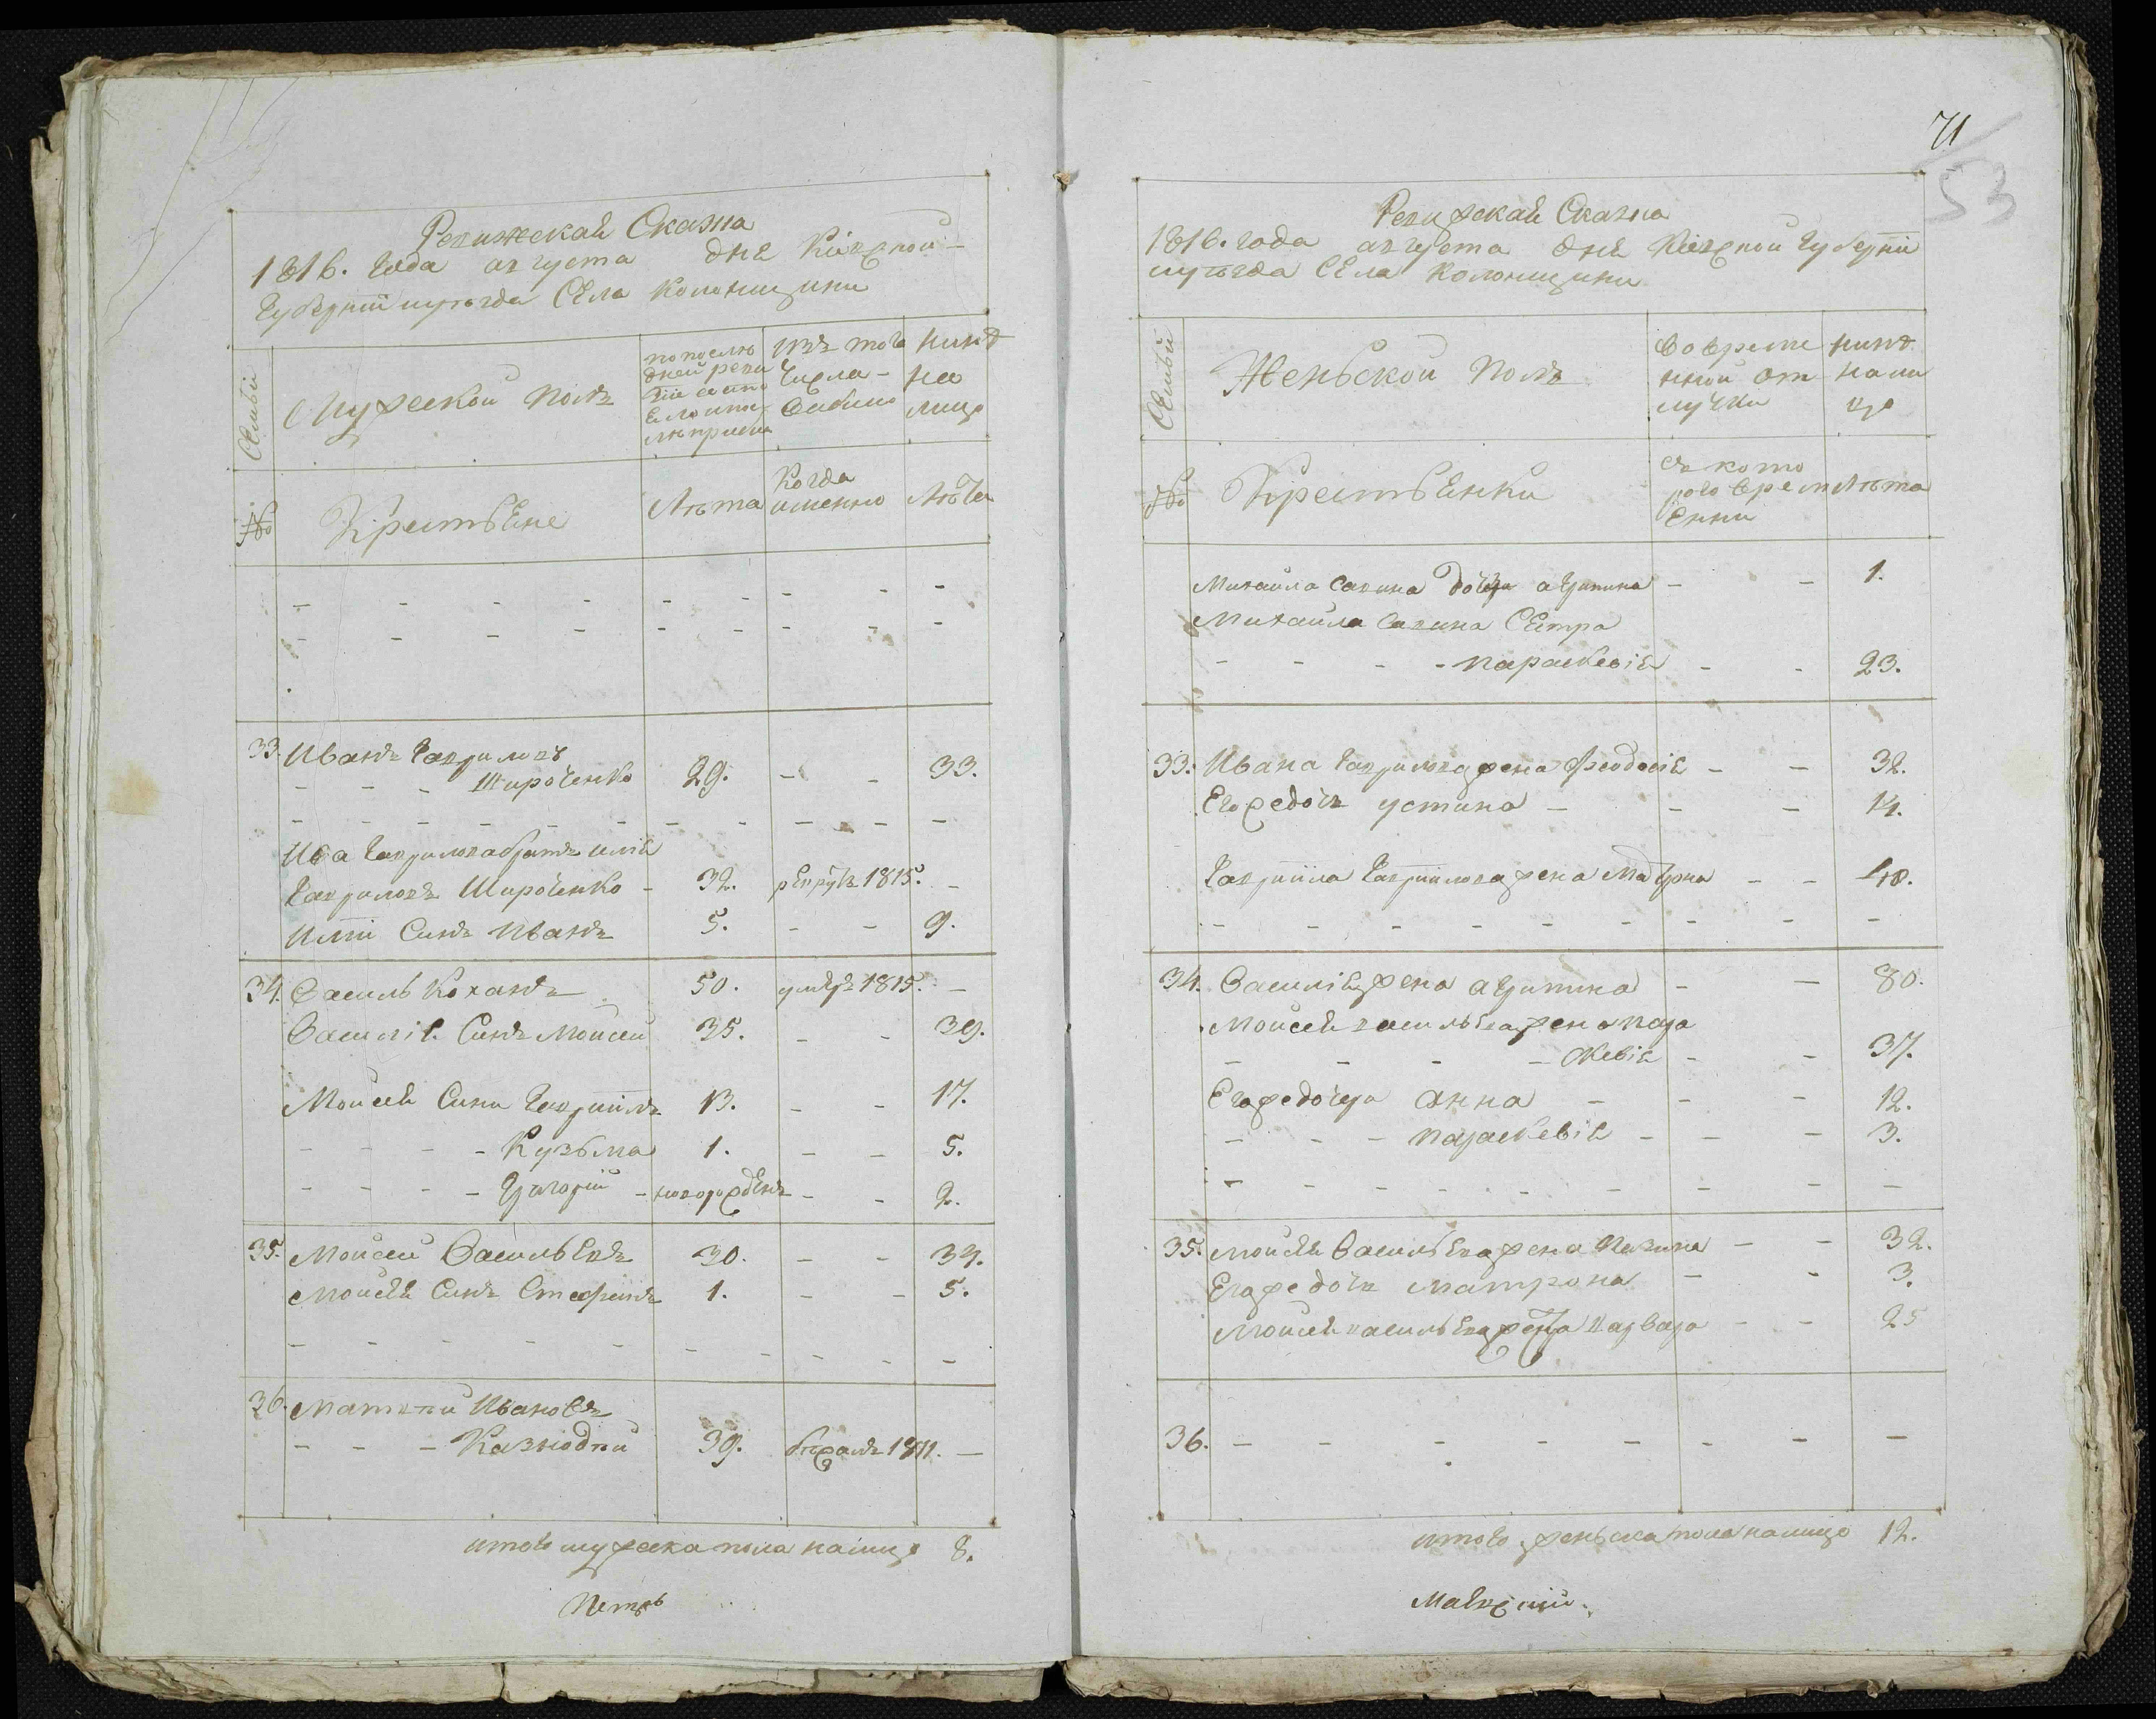 Ревижская Сказка
1816. Года августа дня Кіевской
Губерніи уезда Села Колонщины
Семьи
Мужеской полъ
по последней ревизіи состояло и после прибыло
Изъ того числа выбыло
ныне на лицо
№
Крестьяне
Лета
Когда именно
Лета
33. Иванъ Гавриловъ
Широченко 29. - - 33.
Ива Гаврилова братъ илія
Гавриловъ Широченко - 32. рекрутъ 1815. -
Иліи Синъ Иванъ 5. - - 9.
34. Василь Коханъ 50. умеръ 1815. -
Василія Синъ Моисеи 35. - - 39.
Моисея Сини Гавріилъ 13. - - 17.
- - - - Кузьма 1. - - 5.
- - - - Григорій - новорожденъ - - 2.
35. Моисеи Васильевъ 30. - - 34.
Моисея Синъ Стефанъ 1. - - 5.
36. Матвей Ивановъ
- - - Казнодий 39. бежалъ 1811. -
итого мужеска пола налицо 8.
Петръ
71
53
Ревижская Сказка
1816. года августа дня Кіевской Губерніи
уезда Села Колонщины
Семьи
Женьской полъ
во временной отлучки
ныне на лицо
№
Крестьянки
съ которого времени
Лета
Михаила Савина дочера агрипина - - 1.
Михаила Савина Сестра
- - - - параскевія - - 23.
33. Ивана Гаврилова жена феодосія - - 32.
Его же дочь устина - - - 14.
Гавріила Гаврилова жена Мотрна - - 40.
34. Василія жена агрипина - - 80.
Моисея васильева жена пара
- - - - скевія - - 37.
Его же дочера анна - - - 12.
- - - параскевія - - - 3.
35. Моисея Васильева жена - - 32.
Его же дочь матрона - - 3.
Моисея васильева Варвара - - 25
36. - - - - - - - -
итого женьска пола налицо 12.